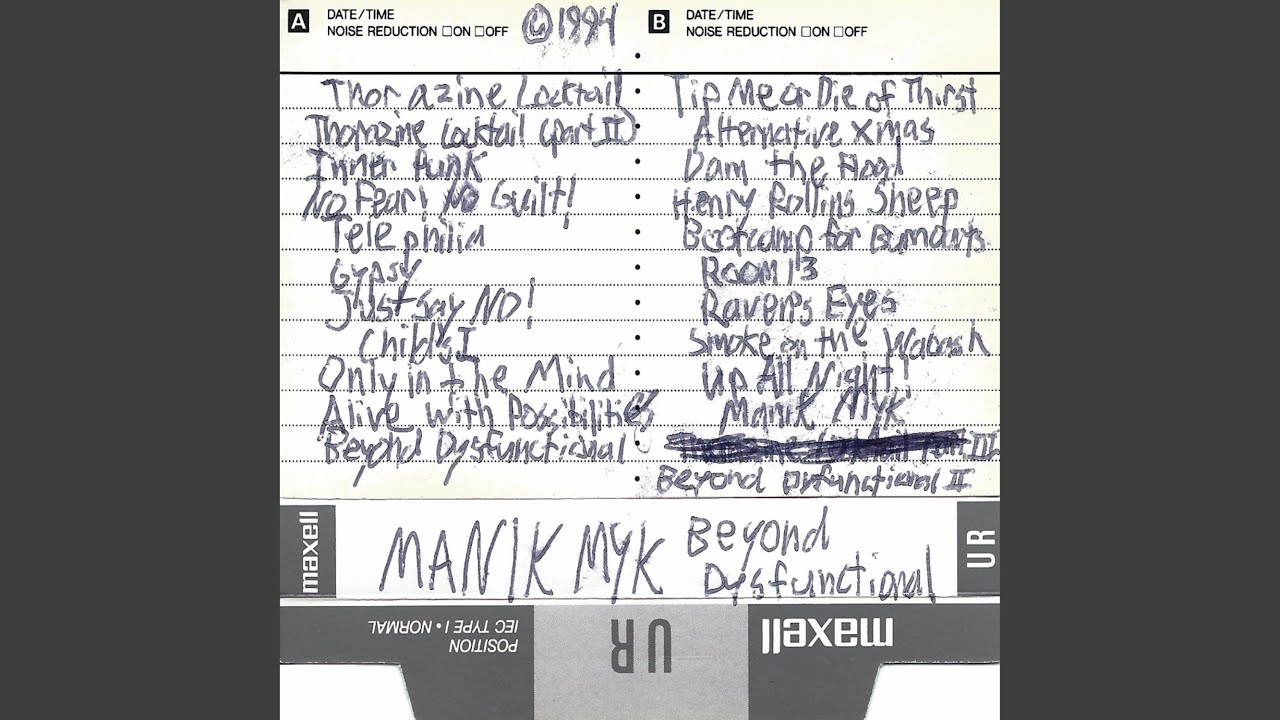 A DATE/TIME
NOISE REDUCTION □ON □OFF
©1994
Thorazine Cocktail
Thorazine Cocktail (part II)
Inner Punk
No Fear! No Guilt!
Telephilia
Gypsy
Just Say NO!
Child's I
Only in the Mind
Alive with Possibilities
Beyond Dysfunctional
B DATE/TIME
NOISE REDUCTION □ON □OFF
Tip Me or Die of Thirst
Alternative Xmas
Dam the Flood
Henry Rollins Sheep
Bootcamp for Dumarts
Room 13
Raven's Eyes
Smoke on the Wabash
Up All Night!
Manik Myk
Thorazine Cocktail Part III
Beyond Dysfunctional II
maxell
MANIK MYK
Beyond
Dysfunctional
UR
POSITION
IEC TYPE I • NORMAL
UR
maxell